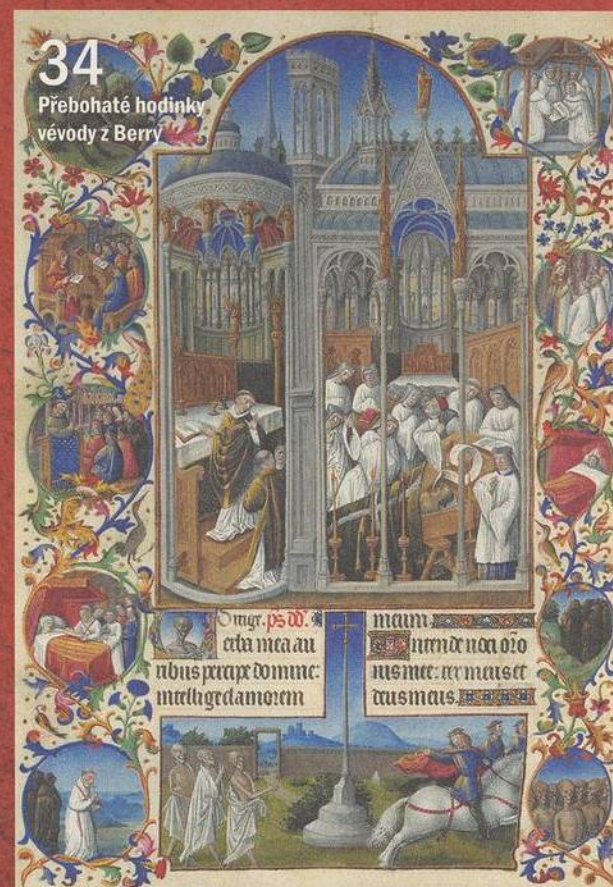 34
Přebohaté hodinky
vévody z Berry
Dirige. ps dd.
erba mea au
ribus percipe domine:
intellige clamorem
meum.
ntende voci oro
nis mee: rex meus et
deus meus.